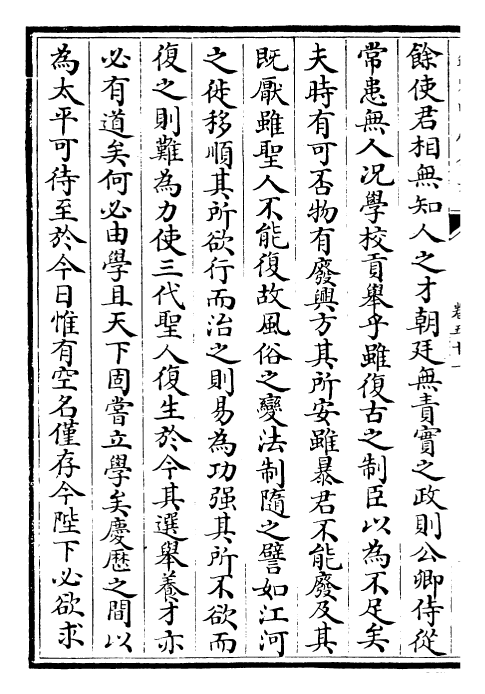 餘使君相無知人之才朝廷無責實之政則公卿侍從
常患無人况學校貢舉乎雖復古之制臣以為不足矣
夫時有可否物有廢興方其所安雖暴君不能廢及其
既厭雖聖人不能復故風俗之變法制隨之譬如江河
之徙移順其所欲行而治之則易為功强其所不欲而
復之則難為力使三代聖人復生於今其選舉養才亦
必有道矣何必由學且天下固嘗立學矣慶歴之間以
為太平可待至於今日惟有空名僅存今陛下必欲求
卷五十一